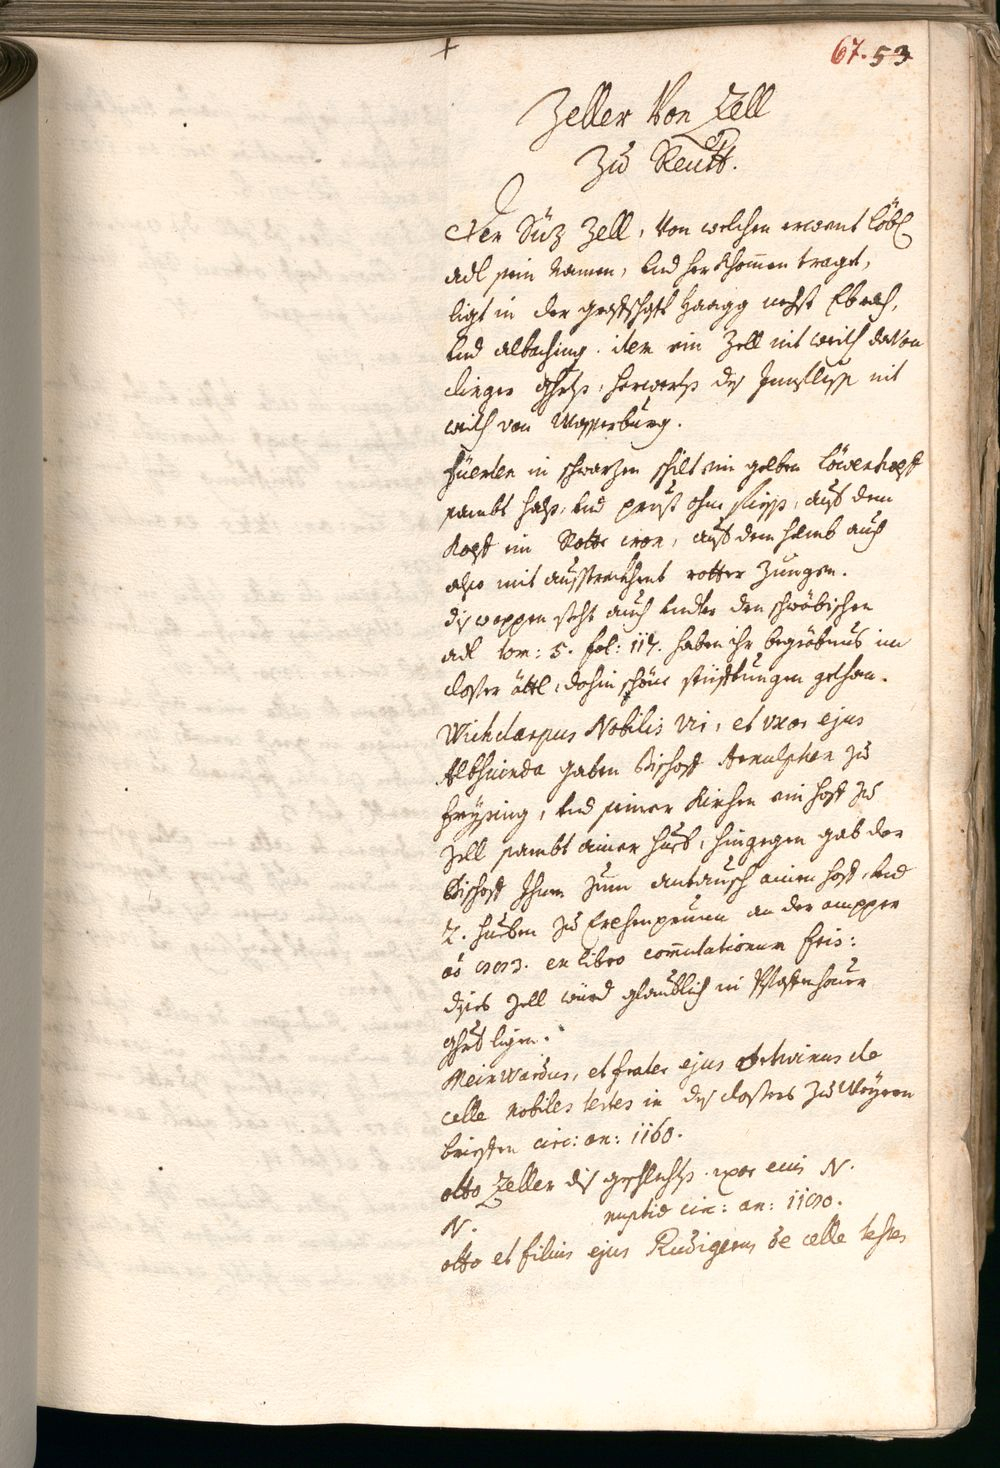 67. 53
Zeller Von Zell
Zu Reutt.
Der Siz Zell, Von welchen erwent Löbl
adl sein Namen, und herkhommen tragt,
ligt in der graffschafft Haagg nechst Ebrach,
und albaching. item ein Zell nit weith davon
clinger gehtß, herwerts des Innfluss nit
weith von Wasserburg.
Füerten in schwarzen schilt ein gelben Löwenkopff
sambt halß, und prust ohne fiess, auf dem
Kopff ein Rotte cron, auf dem helmb auch
also mit ausstrekhent rotter Zungen.
dis wappen steht auch under den schwäbischen
adl tom: 5. fol: 117. haben ihr begräbnus im
closter ättl, dahin schöne stüfftungen gethan.
Wichdarpus Nobilis vir, et vxor ejus
Althuinda gaben Bischoff Arnulphen zu
Freysing, und seiner Kirchen ein hoff zu
Zell sambt ainer hueb, hingegen gab der
Bischoff Ihme zum antausch ainen hoff, und
2. hueben zu Erchenprunn an der ampper
ex libro commutationum fris:
dises Zell würd glaublich in Pfaffenhover
ghrt ligen.
Meinwardus, et frater ejus Ortwinus de
celle nobiles testes in des closters zu Weyern
brieffen circ: an: 1160.
otto Zeller dis geschlechts. uxor eius N.
N. nuptiae circ: an: 1190.
otto et filius ejus Rudigerus de celle testes